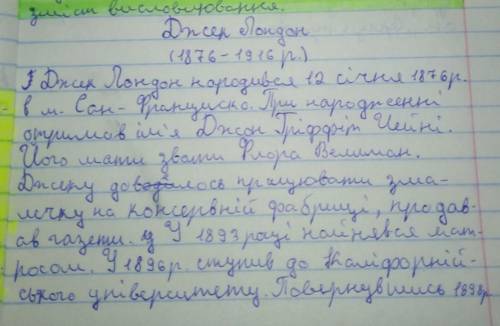 зміст висловлювання.
Джек Лондон
(1876-1916 р.)
Джек Лондон народився 12 січня 1876р.
в м. Сан-Франциско. При народженні
отримав ім'я Джон Гріффіт Чейні.
Його мати звати Флора Веллман.
Джеку довелось працювати зма-
лечку на консервній фабриці, продав-
ав газети. У 1893 році найнявся мат-
росом. У 1896р. ступив до Каліфорній-
ського університету. Повернувшись 1898р.